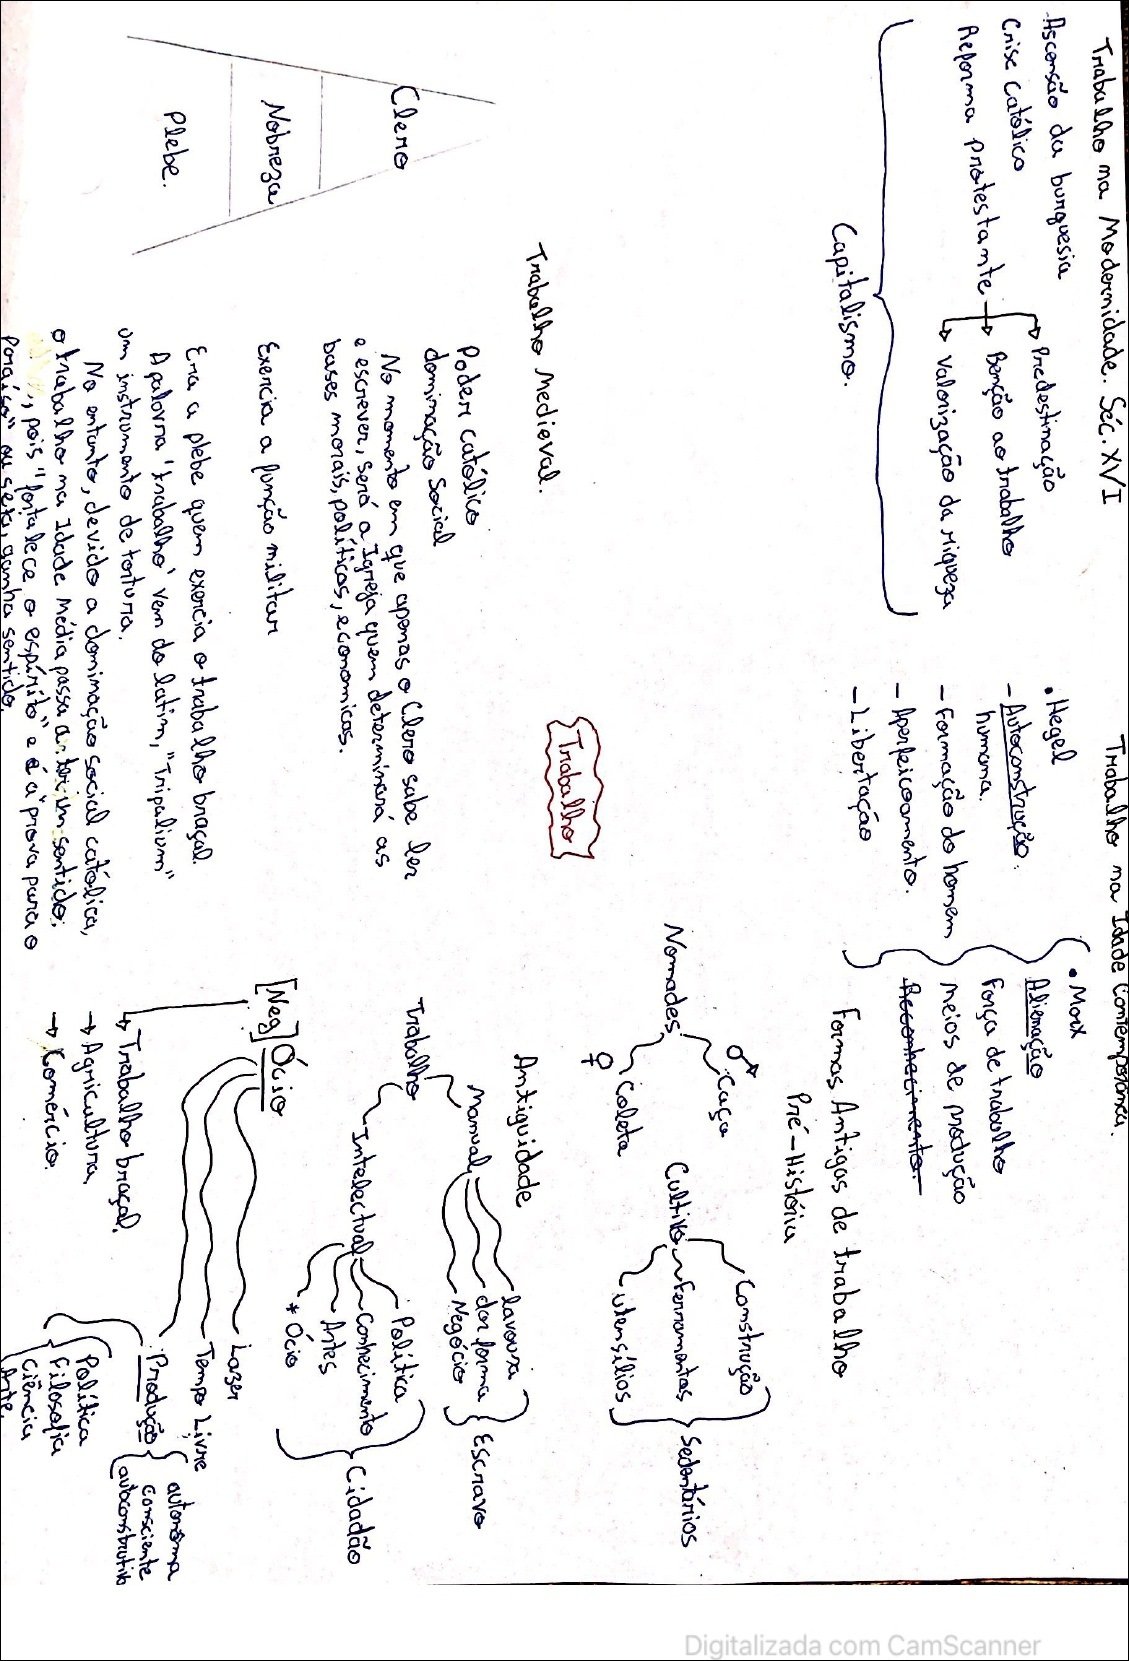 Trabalho na Modernidade. Séc. XVI
- Ascensão da burguesia
Crise Católica
Reforma protestante
Predestinação
Benção ao trabalho
Valorização da riqueza
Capitalismo.
Trabalho na Idade Contemporânea.
• Hegel
- Autoconstrução
humana.
- Formação do homem
- Aperfeicoamento.
- Libertação
• Marx
Alienação
Força de trabalho
meios de produção
Reconhecimento.
Trabalho
Formas Antigas de trabalho
Pré-História
Nomades
♂ Caça
♀ Coleta
Cultivo
Construção
Ferramentas
utensílios
Sedentários
Antiguidade
Trabalho
Manual
lavoura
dar forma
Negócio
Escravo
Intelectual
Política
Conhecimento
Artes
* Ócio
Cidadão
[Neg] Ócio
→ Trabalho braçal.
→ Agricultura
→ Comércio.
Lazer
Tempo Livre
Produção
autonoma
consciente
autoconstrutiva
Política
Filosofia
Ciência
Arte.
Trabalho Medieval.
Clero
Nobreza
Plebe.
Poder católico
dominação social
No momento em que apenas o Clero sabe ler
e escrever, será a Igreja quem determinará as
bases morais, políticas, economicas.
Exercia a função militar
Era a plebe quem exercia o trabalho braçal.
A palavra 'trabalho' vem do latim, "Tripalium"
um instrumento de tortura.
No entanto, devido a dominação social católica,
o trabalho na Idade Média passa a ter um sentido,
pois "fortalece o espírito" e é a "prova para o
paraíso" ou seja, ganha sentido.
Digitalizada com CamScanner